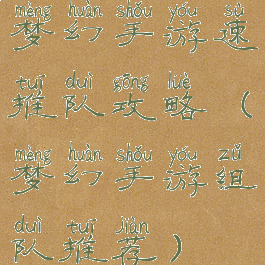 mèng huàn shǒu yóu sù
梦幻手游速
tuī duì gōng lüè
推队攻略（
mèng huàn shǒu yóu zǔ
梦幻手游组
duì tuī jiàn
队推荐）